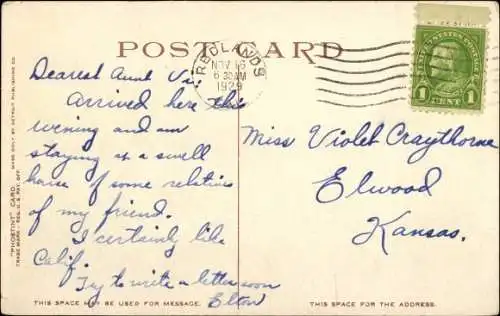 POST CARD
REDLANDS
NOV 16
6 30AM
1929
UNITED STATES POSTAGE
1 CENT 1
Dearest Aunt Vi:
Arrived here this
evening and am
staying at a swell
house of some relatives
of my friend.
I certainly like
Calif.
Try to write a letter soon
Elton
THIS SPACE MAY BE USED FOR MESSAGE.
Miss Violet Craythorne
Elwood
Kansas.
THIS SPACE FOR THE ADDRESS.
"PHOSTINT" CARD
MADE ONLY BY DETROIT PUBLISHING CO.
TRADE MARK REG. U.S. PAT. OFF.